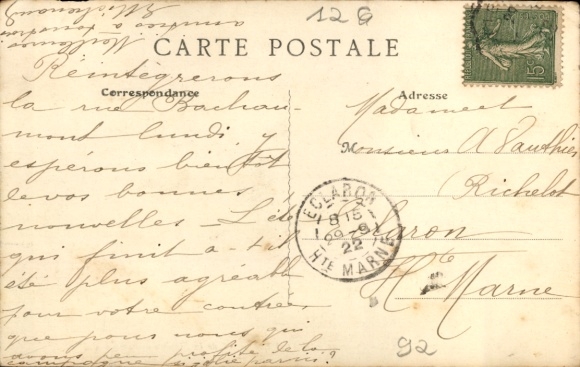 12 G
CARTE POSTALE
Correspondance
Adresse
Réintégrerons
la rue Bachau-
mont lundi, y
espérons bientôt
de vos bonnes
nouvelles. L'été
qui finit a-t-il
été plus agréable
pour votre contrée
que pour nous qui
avons peu profité de la
campagne si jolie
Meilleures
amitiés à
Madame et
Monsieur A Vauthier
(Richelot
Eclaron
Hte Marne
ECLARON
8 15
29-9
22
HTE MARNE
5c
92